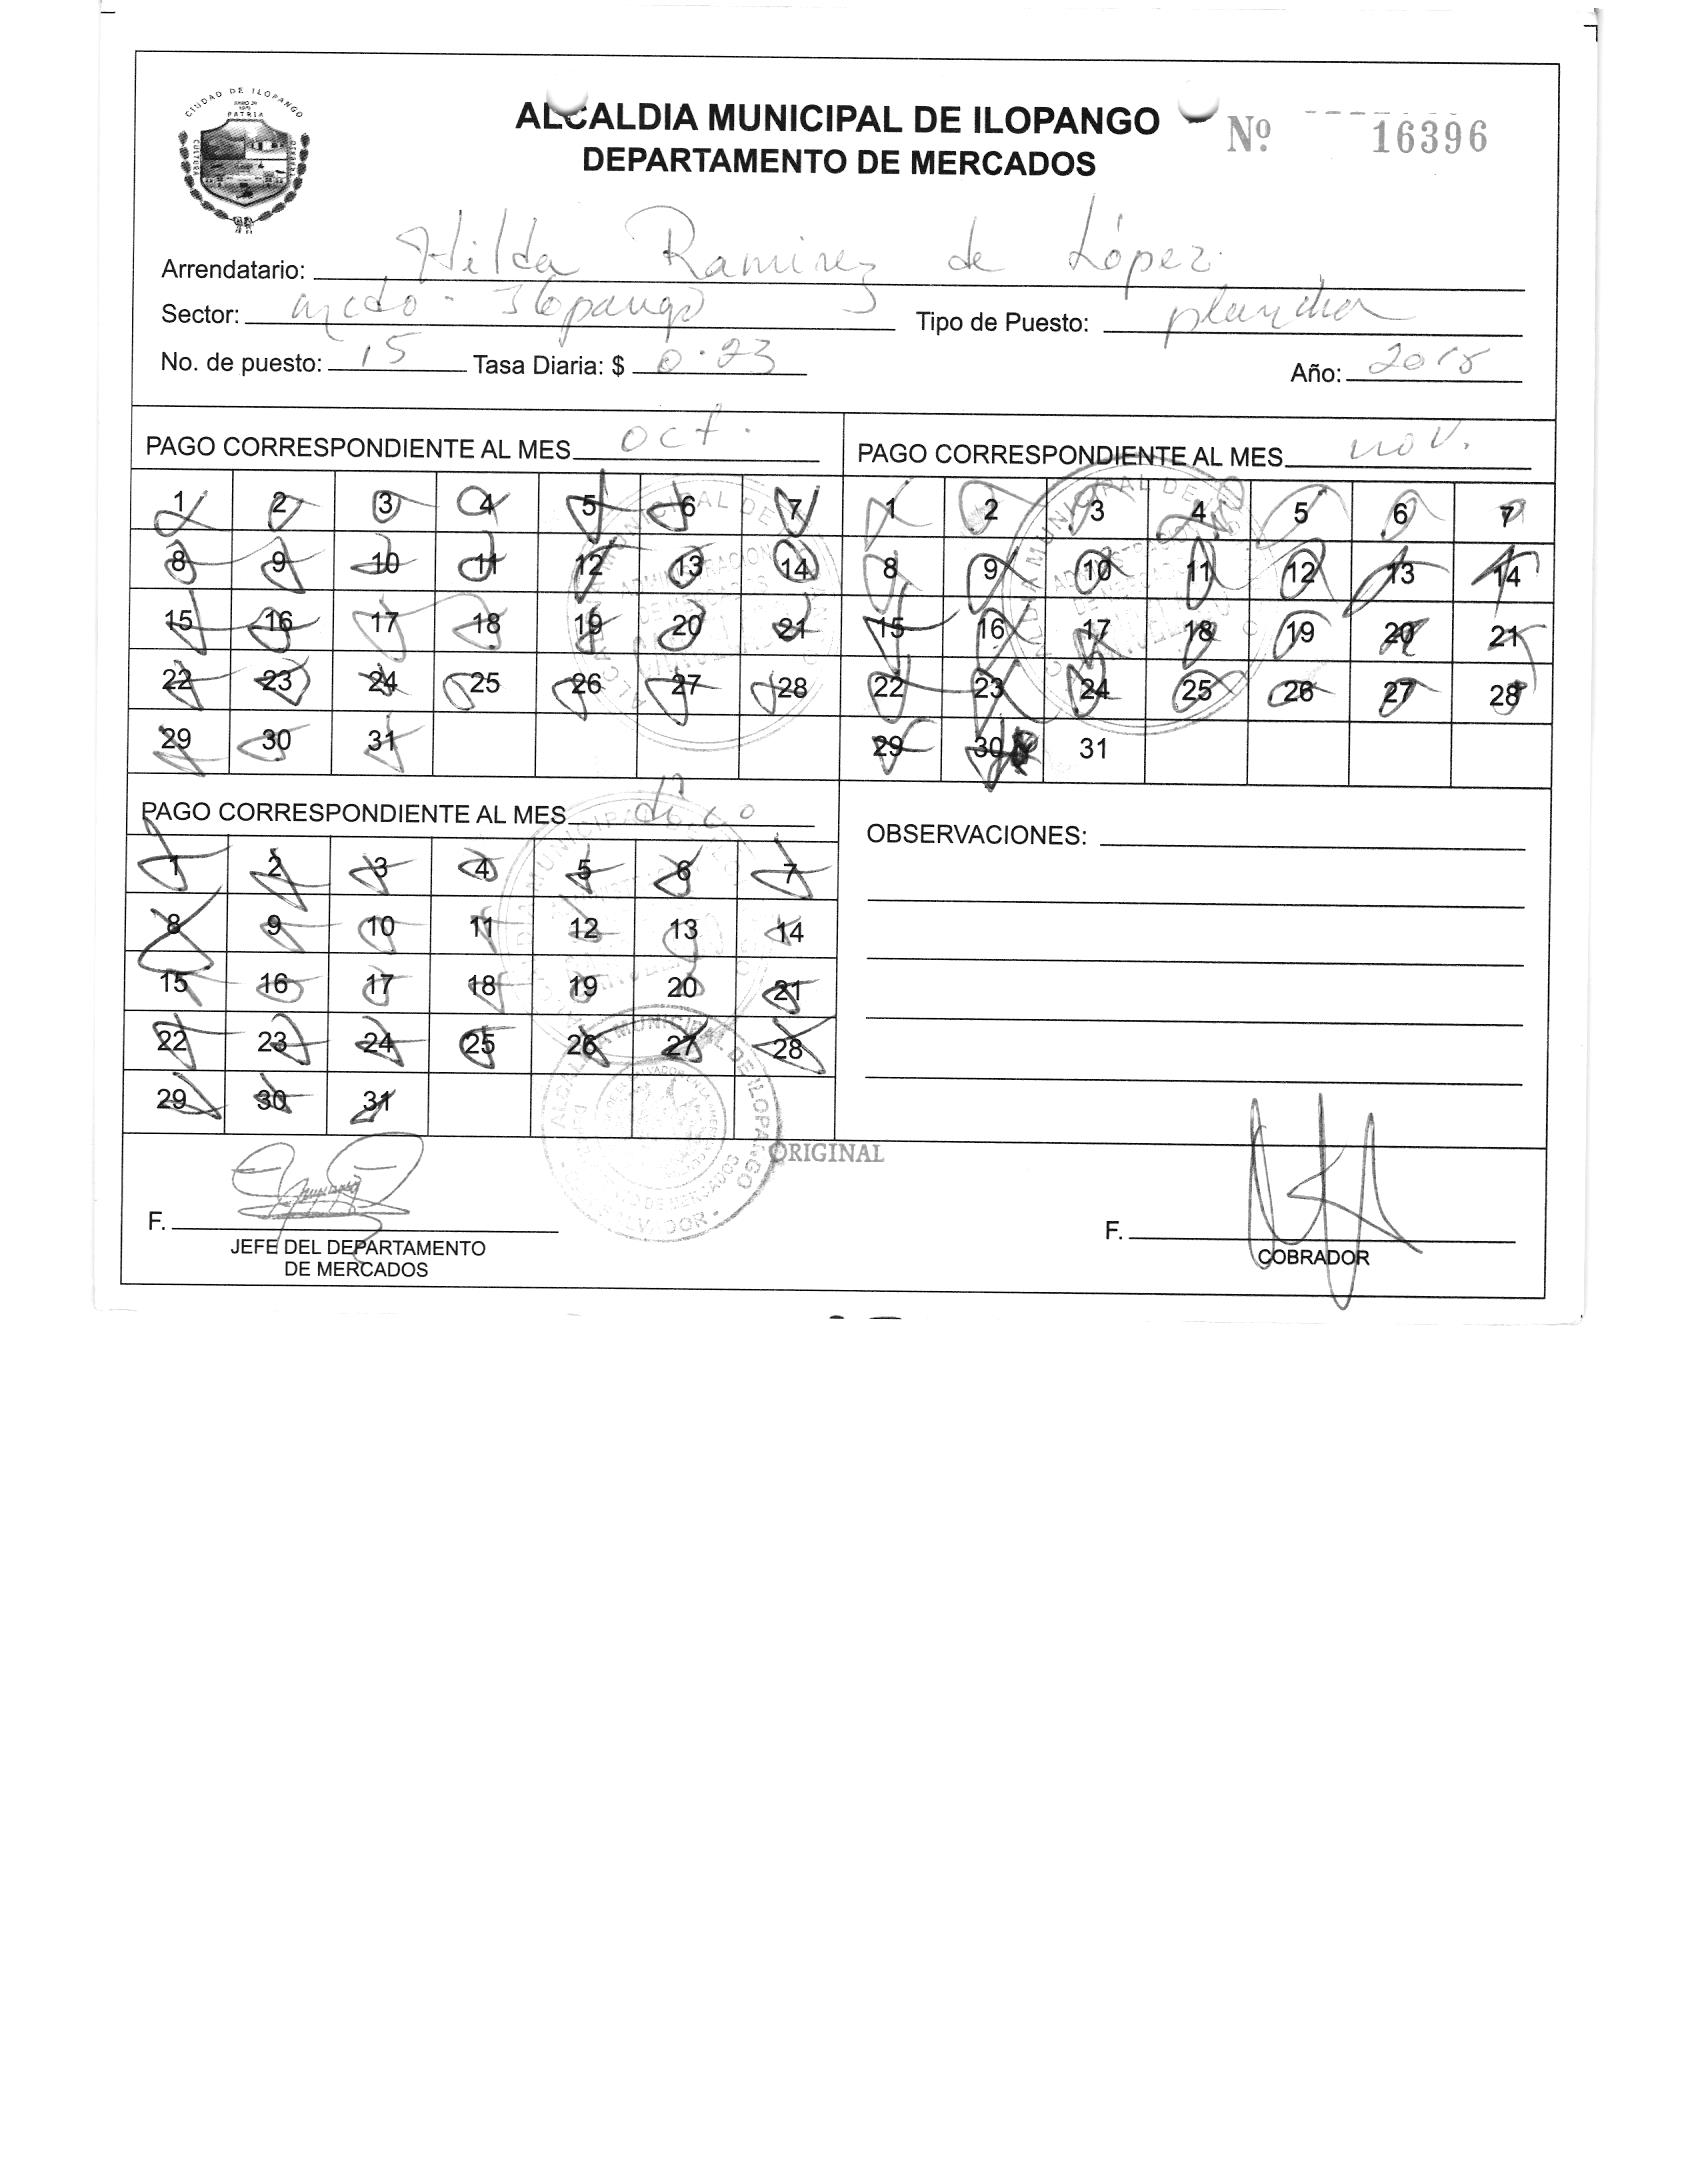 CIUDAD DE ILOPANGO
PATRIA
CULTURA
ALCALDIA MUNICIPAL DE ILOPANGO
Nº 16396
DEPARTAMENTO DE MERCADOS
Arrendatario: Hilda Ramirez de López
Sector: mcdo - Ilopango Tipo de Puesto: plancha
No. de puesto: 15 Tasa Diaria: $ 0.23 Año: 2018
PAGO CORRESPONDIENTE AL MES oct.
1 2 3 4 5 6 7
8 9 10 11 12 13 14
15 16 17 18 19 20 21
22 23 24 25 26 27 28
29 30 31
PAGO CORRESPONDIENTE AL MES nov.
1 2 3 4 5 6 7
8 9 10 11 12 13 14
15 16 17 18 19 20 21
22 23 24 25 26 27 28
29 30 31
PAGO CORRESPONDIENTE AL MES
1 2 3 4 5 6 7
8 9 10 11 12 13 14
15 16 17 18 19 20 21
22 23 24 25 26 27 28
29 30 31
OBSERVACIONES:
ALCALDIA MUNICIPAL DE ILOPANGO
ORIGINAL
F.
JEFE DEL DEPARTAMENTO
DE MERCADOS
F.
COBRADOR